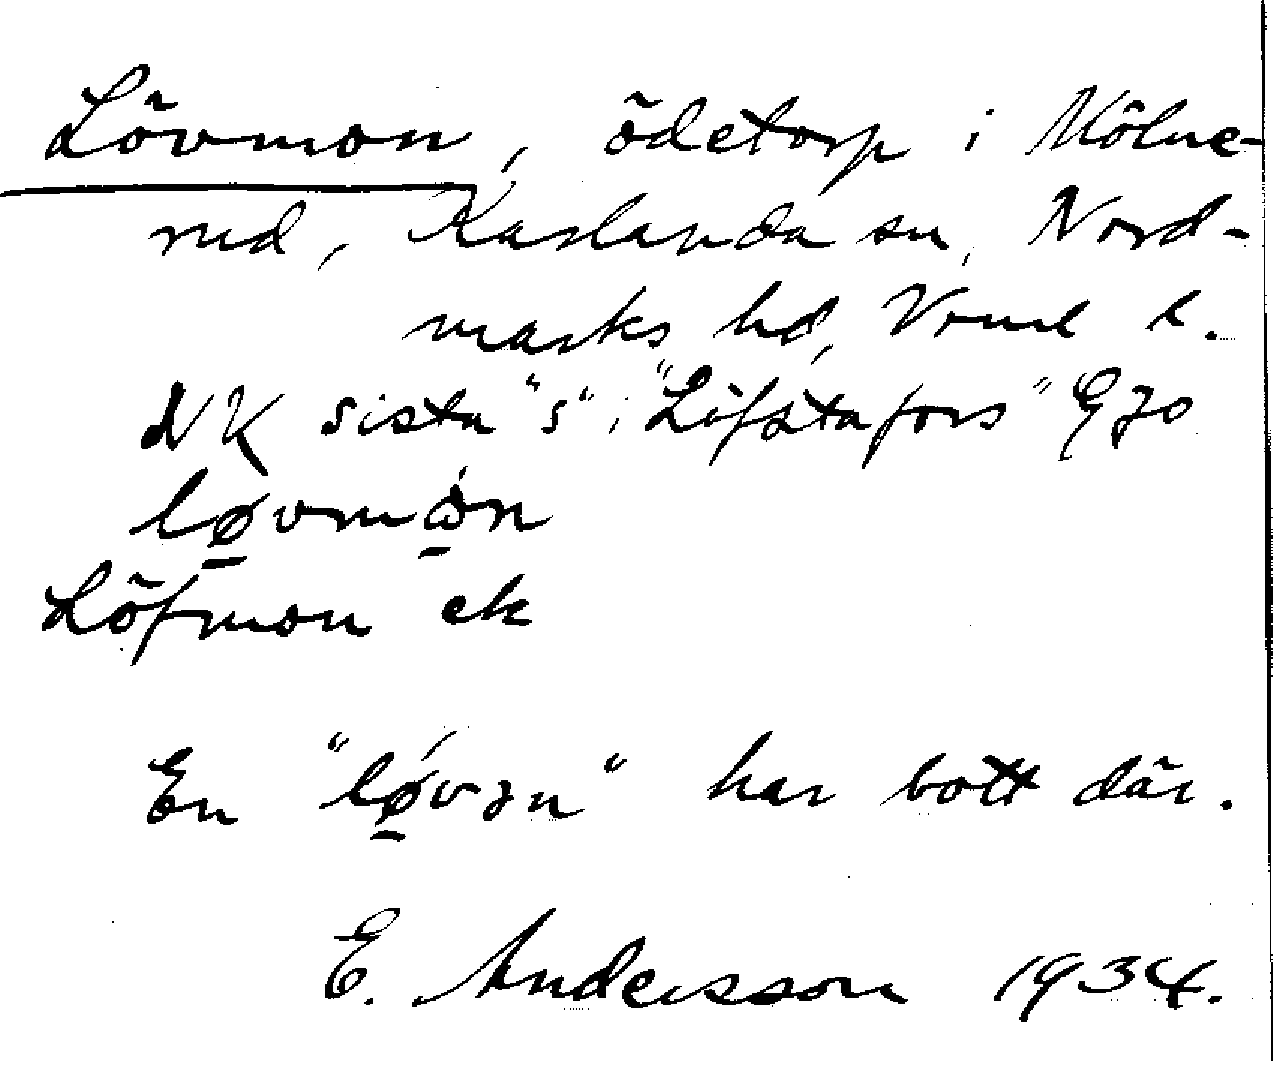 Lövmon, ödetorp i Mölne-
rud, Karlanda sn, Nord-
marks hd, Vrml l.
NK sista "s" i "Löfstafors" Ej 70
løvmòn
Löfmon ek
En "løv́ən" har bott där.
E. Andersson 1934.